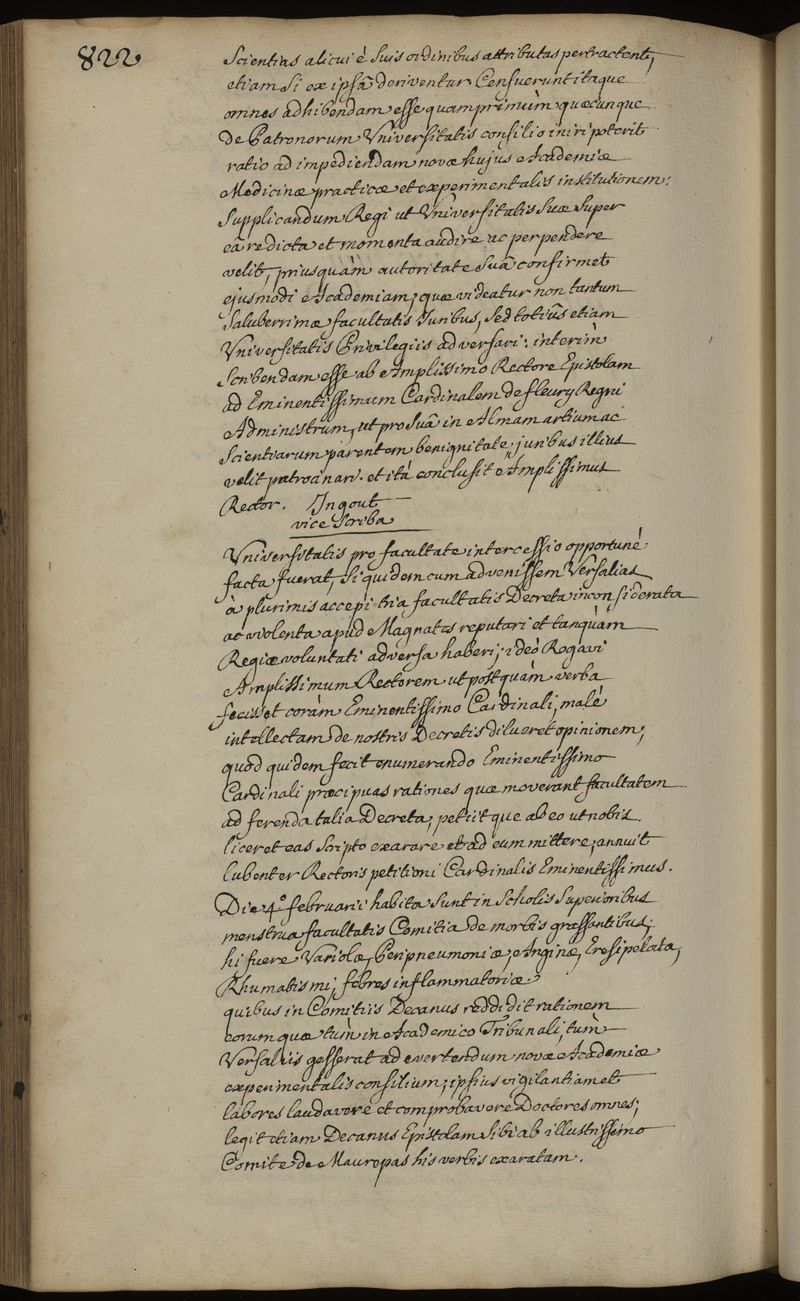 822
Scientias alicui è Suis ordinibus attributas pertractent,
etiam Si ex ipsâ deriventur Censuerunt itaque
omnes adhibendam esse quamprimùm quæcunque
De Patronorum Universitatis consilio iniri poterit
ratio ad impediendam novæ hujus Academiæ
Medicinæ practicæ et experimentalis institutionem:
Supplicandum Regi ut Universitatis Suæ Super
eâ re dicta et momenta audire ac perpendere
velit, priusquàm autoritate Suâ confirmet
ejusmodi Academiam; quæ videatur non tantum
Saluberrimæ facultatis Juribus, Sed totius etiam
Universitatis Privilegiis adversari: interim
Scribendam esse ab Amplissimo Rectore Epistolam
ad Eminentissimum Cardinalem de fleury Regni
Administrum, ut pro Suâ in Almam artium ac
Scientiarum parentem benignitate, juribus illius
velit patrocinari. et ità conclusit Amplissimus
Rector. Ingout
vice Scriba
Universitatis pro facultate intercessio opportunè
facta fuerat, Siquidem cum advenissem Versalias
à plurimis accepi tria facultatis Decreta inconsiderata
ac violenta apud Magnates reputari et tanquàm
Regiæ voluntati adversa haberi; ideò Rogavi
Amplissimum Rectorem ut postquàm verba
fecisset coràm Eminentissimo Cardinali, malè
intellectam de nostris Decretis dilueret opinionem;
quod quidem fecit enumerando Eminentissimo
Cardinali præcipuas rationes quæ moverant facultatem
ad ferenda talia Decreta; petiitque ab eo ut nobis
liceret eas Scripto exarare et ad eum mittere; annuit
lubenter Rectoris petitioni Cardinalis Eminentissimus.
Die 4º februarii habita Sunt in Scholis Superioribus
menstrua facultatis Comitia de morbis grassantibus;
hi fuere Variolæ, Peripneumoniæ, Anginæ, Eresipelata,
Rhumatismi, febres inflammatoriæ
quibus in Comitiis Decanus reddidit rationem
eorum quæ tùm in Academico Tribunali, tùm
Versaliis gesserat ad evertendum novæ Academiæ
experimentalis consilium; ipsius vigilantiam et
labores laudavere et comprobavere Doctores omnes;
legit etiam Decanus Epistolam Sibi ab illustrissimo
Comite de Maurepas his verbis exaratam.